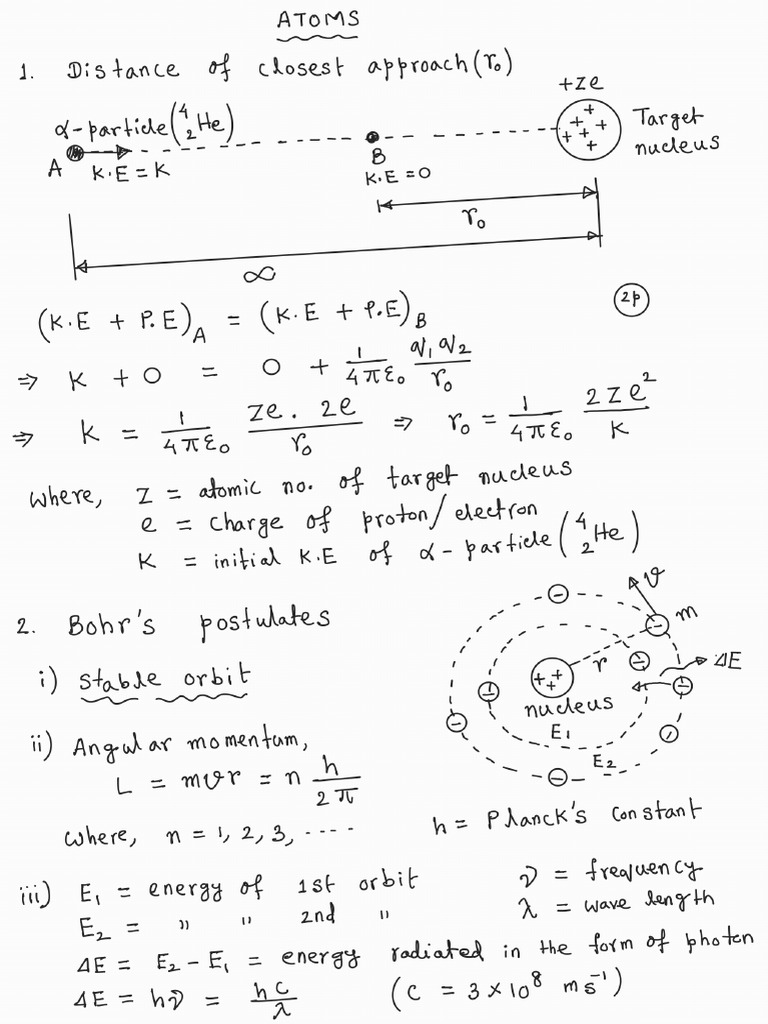 ATOMS
1. Distance of closest approach (r₀)
+ze
α-particle (⁴₂He)
Target
nucleus
A
K.E = K
B
K.E = 0
r₀
∞
2p
(K.E + P.E)_A = (K.E + P.E)_B
⇒ K + 0 = 0 + 1/4πε₀ q₁q₂/r₀
⇒ K = 1/4πε₀ ze . 2e/r₀ ⇒ r₀ = 1/4πε₀ 2ze²/K
where, z = atomic no. of target nucleus
e = charge of proton/electron
K = initial K.E of α-particle (⁴₂He)
2. Bohr's postulates
i) stable orbit
v
m
r
ΔE
nucleus
E₁
E₂
ii) Angular momentum,
L = mvr = n h/2π
where, n = 1, 2, 3, ....
h = Planck's constant
iii) E₁ = energy of 1st orbit
E₂ = " " 2nd "
ν = frequency
λ = wave length
ΔE = E₂ - E₁ = energy radiated in the form of photon
ΔE = hν = hc/λ (c = 3×10⁸ ms⁻¹)